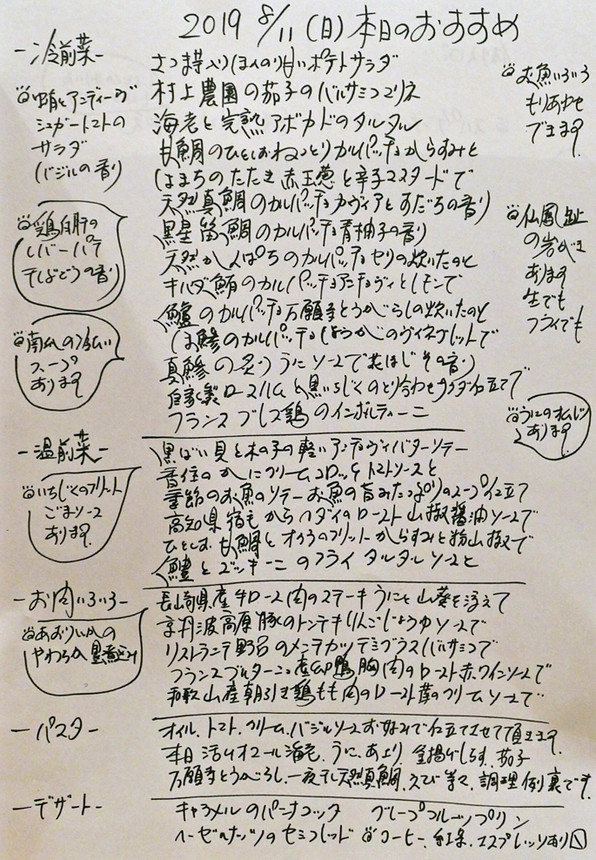 2019 8/11 (日) 本日のおすすめ
-冷前菜-
さつま芋入りほんのり甘いポテトサラダ
村上農園の茄子のバルサミコマリネ
海老と完熟アボカドのタルタル
甘鯛のひとしおねっとりカルパッチョからすみと
はまちのたたき 赤玉葱と辛子マスタードで
天然真鯛のカルパッチョカヴィアとすだちの香り
黒星笛鯛のカルパッチョ青柚子の香り
天然かんぱちのカルパッチョセリの炊いたのと
キハダ鮪のカルパッチョアンチョヴィとレモンで
鱸のカルパッチョ万願寺とうがらしの炊いたのと
しま鯵のカルパッチョしょうがのヴィネグレットで
真鯵の炙りうにソースで花ほじその香り
自家製ロースハムと黒いちじくのとり合わせサラダ仕立てで
フランスブレス鶏のインボルティーニ
シュガートマトの
サラダ
(バジルの香り)
鶏白肝の
レバーパテ
干しぶどうの香り
スープ
あります
魚いろいろ
もりあわせ
できます
の岩がき
あります
生でも
フライでも
あります
-温前菜-
黒ばい貝と木の子の軽いアンチョヴィバターソテー
香住のかにクリームコロッケトマトソースと
季節のお魚のソテーお魚の旨みたっぷりのスープ仕立て
高知県宿毛からハダイのロースト山椒醤油ソースで
ひとしお甘鯛とオクラのフリットからすみと粉山椒で
鱧とズッキーニのフライタルタルソースと
いちじくのフリット
ごまソース
あります
-お肉いろいろ-
長崎県産牛ロース肉のステーキうにと山葵を添えて
京丹波高原豚のトンテキりんごしょうゆソースで
リストランテ野呂のメンチカツデミグラスバルサミコで
フランスブルターニュ産 鴨胸肉のロースト赤ワインソースで
和歌山産朝引き鶏もも肉のロースト茸のクリームソースで
あおりいかの
やわらか墨煮込み
-パスタ-
オイル、トマト、クリーム、バジルソースお好みで仕立てさせて頂きます。
本日 活〆オマール海老、うに、あさり、釜揚げしらす、茄子
万願寺とうがらし、一夜干し天然真鯛、えび等々、調理例裏です。
-デザート-
キャラメルのパンナコッタ グレープフルーツプリン
ヘーゼルナッツのセミフレッド コーヒー、紅茶、エスプレッソあり